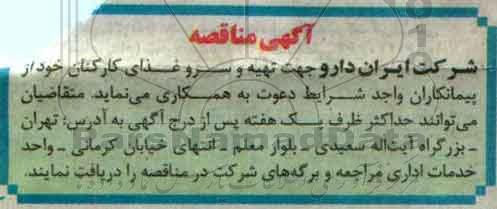 آگهی مناقصه
شرکت ایران دارو جهت تهیه و سرو غذای کارکنان خود از
پیمانکاران واجد شرایط دعوت به همکاری می‌نماید. متقاضیان
می‌توانند حداکثر ظرف یک هفته پس از درج آگهی به آدرس: تهران
- بزرگراه آیت‌اله سعیدی - بلوار معلم - انتهای خیابان کرمانی - واحد
خدمات اداری مراجعه و برگه‌های شرکت در مناقصه را دریافت نمایند.
ParsNamadData